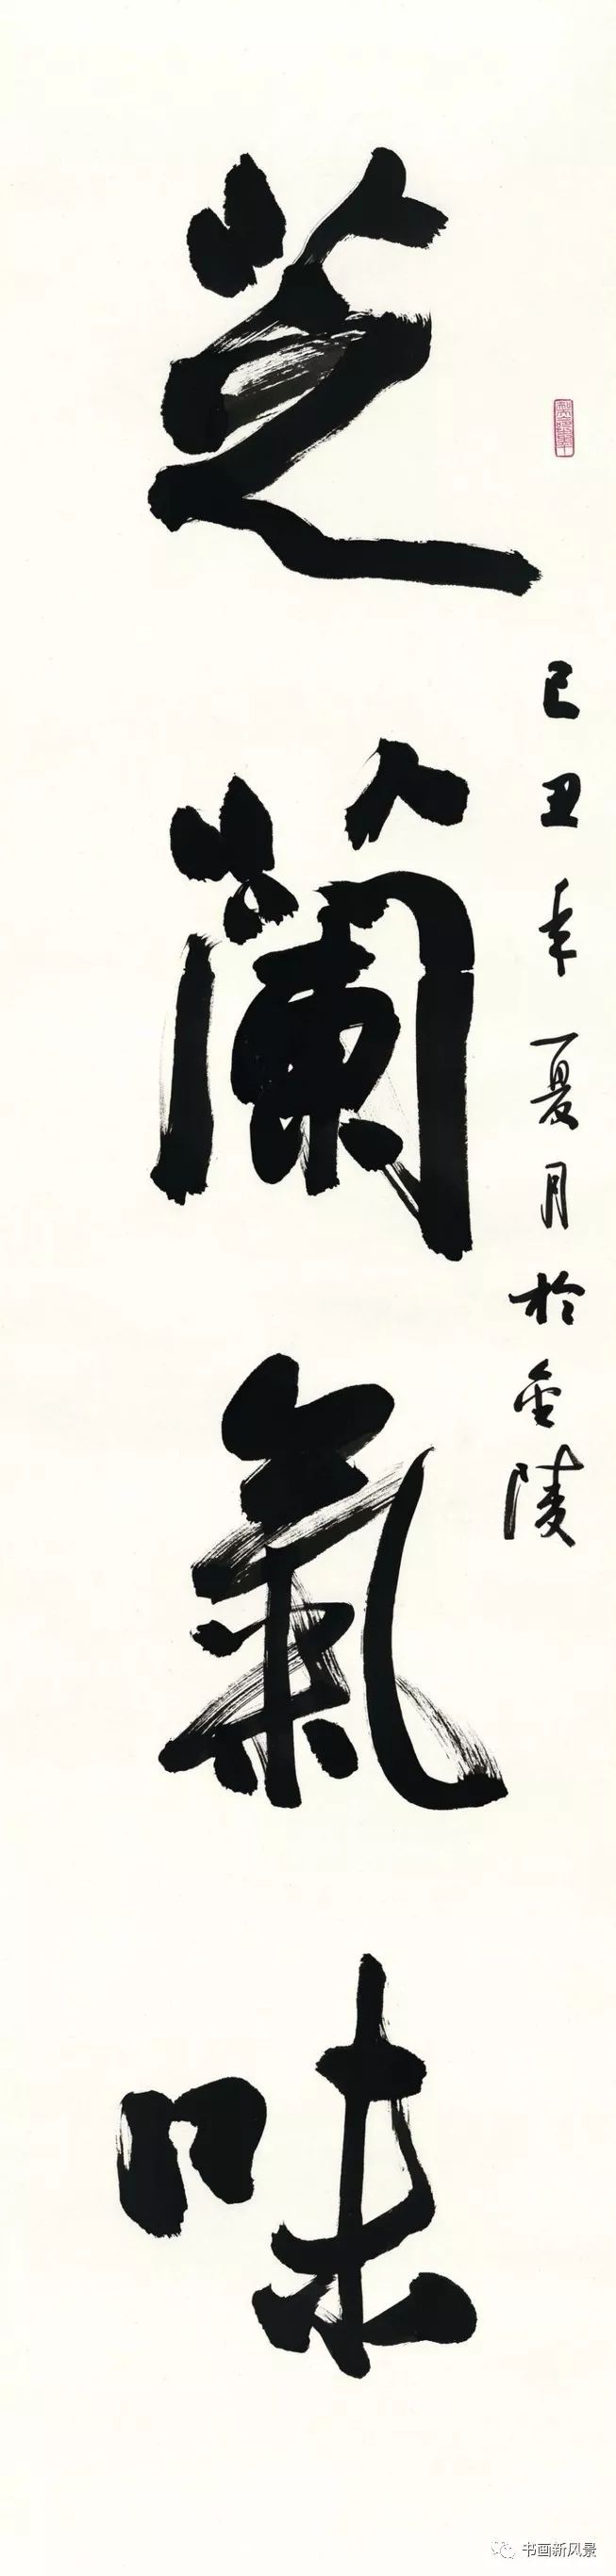 芝蘭氣味
己丑年夏月於金陵
书画新风景